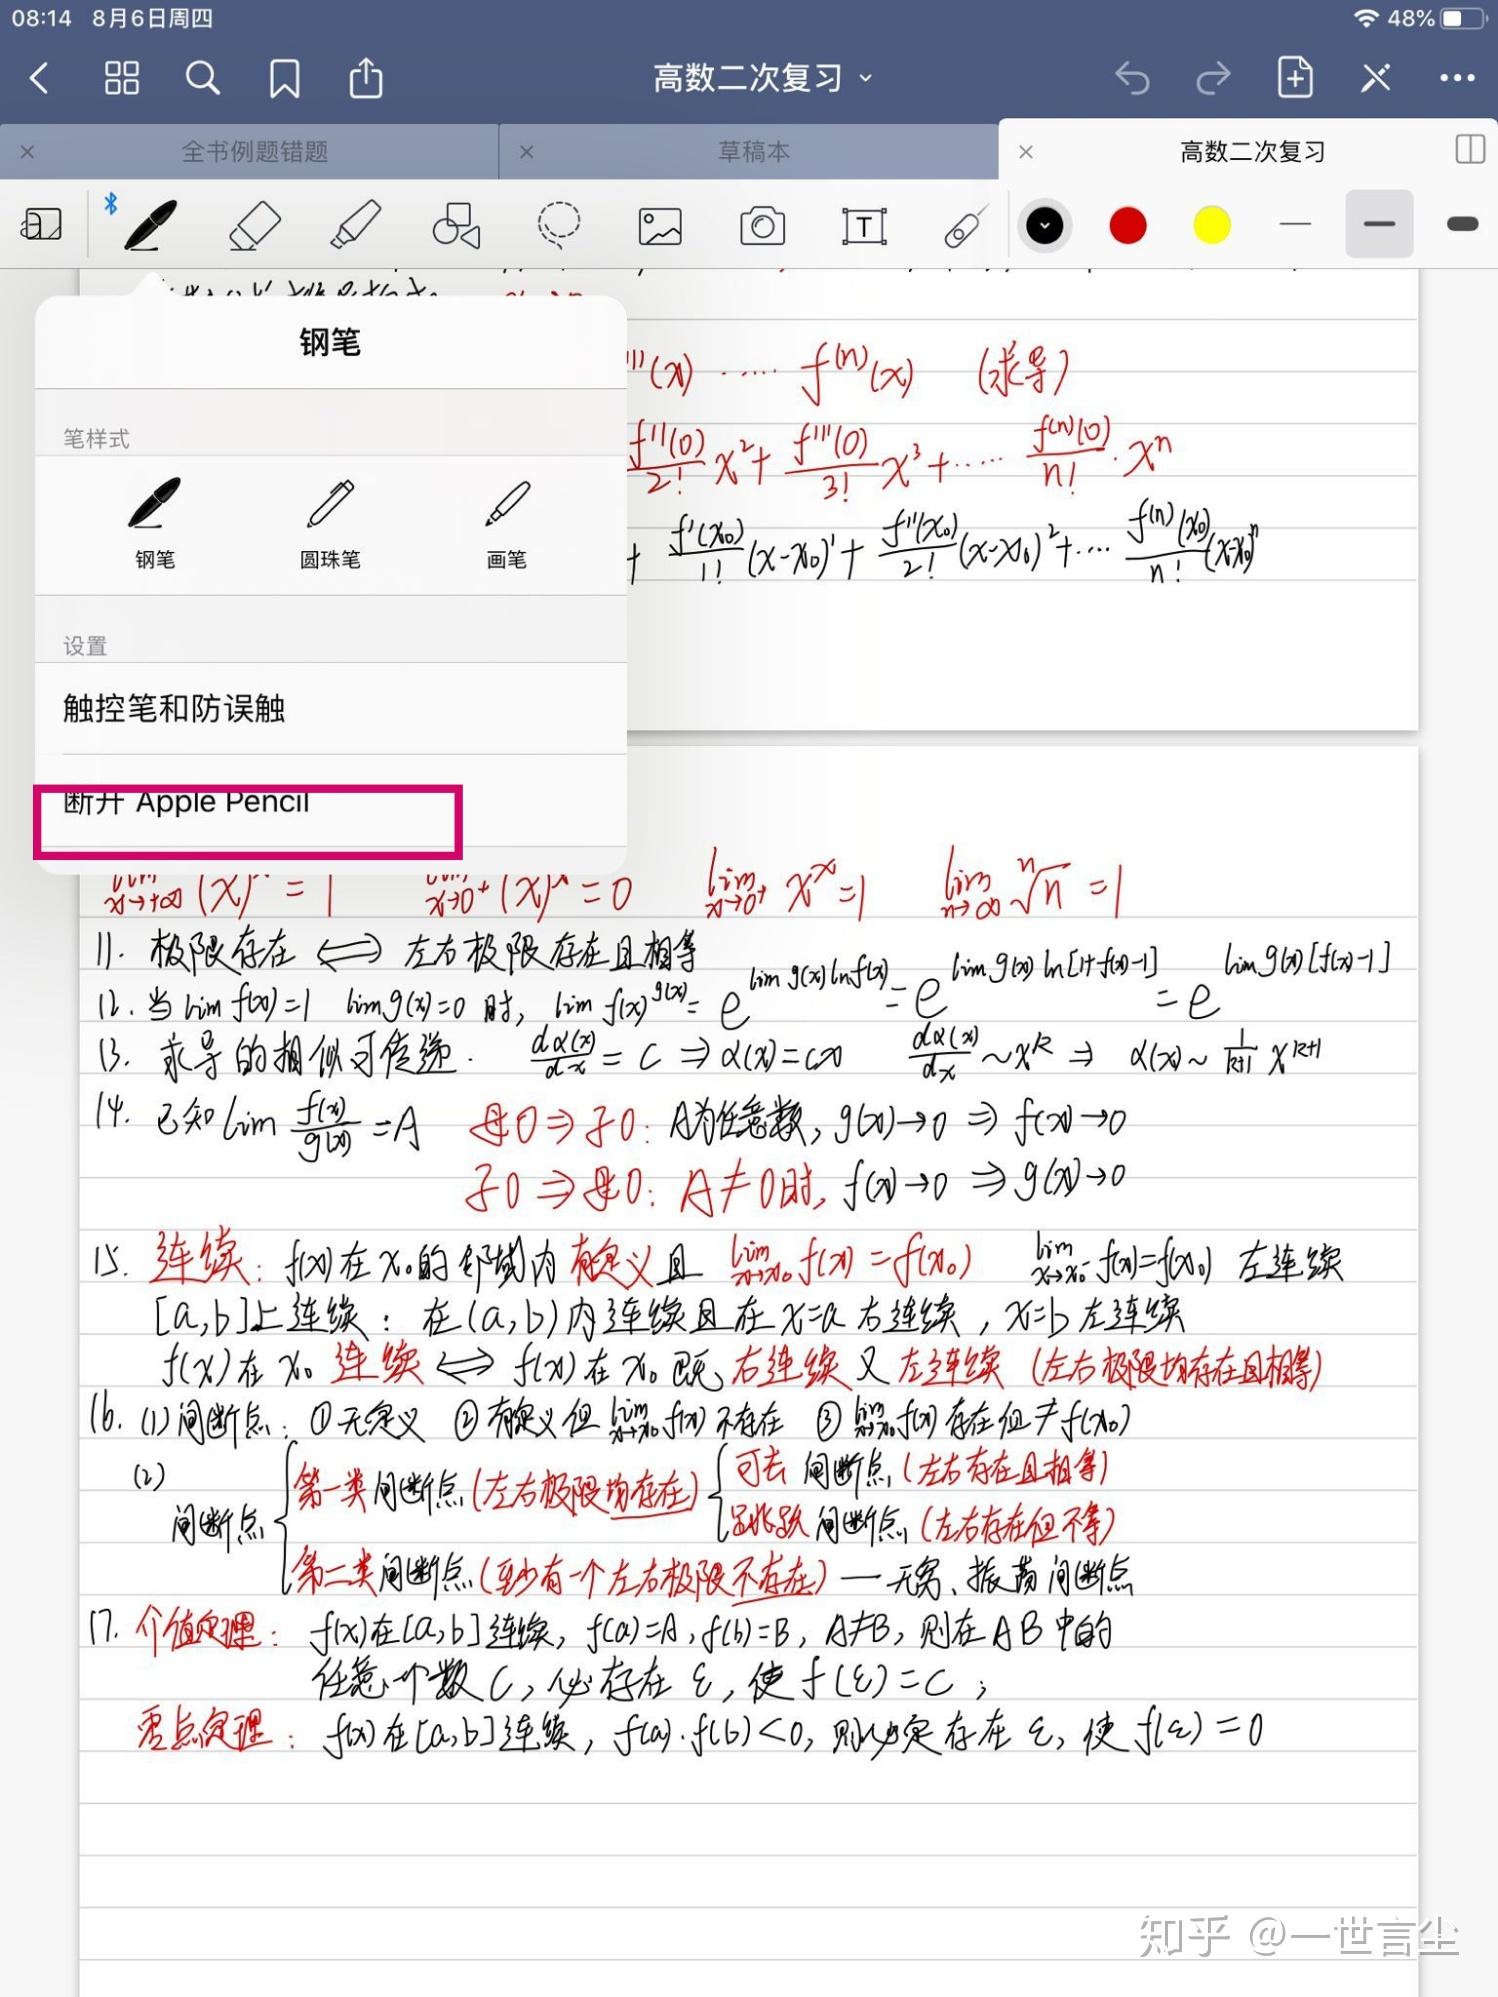 08:14 8月6日周四 48%
高数二次复习
全书例题错题 草稿本 高数二次复习
钢笔
笔样式
钢笔 圆珠笔 画笔
设置
触控笔和防误触
断开 Apple Pencil
'''(x) ····· f⁽ⁿ⁾(x) (求导)
f''(0)/2! x² + f'''(0)/3! x³ + ····· f⁽ⁿ⁾(0)/n! · xⁿ
+ f'(x₀)/1! (x-x₀)¹ + f''(x₀)/2! (x-x₀)² + ···· f⁽ⁿ⁾(x₀)/n! (x-x₀)ⁿ
lim x→0⁺ xˣ = 1 lim n→∞ ⁿ√n = 1
11. 极限存在 ⟺ 左右极限存在且相等
12. 当 lim f(x)=1 lim g(x)=0 时, lim f(x)^g(x) = e^(lim g(x) ln f(x)) = e^(lim g(x) ln[1+f(x)-1]) = e^(lim g(x)[f(x)-1])
13. 求导的相似可传递. dα(x)/dx = C ⇒ α(x) = cx dα(x)/dx ~ xᵏ ⇒ α(x) ~ 1/(k+1) xᵏ⁺¹
14. 已知 lim f(x)/g(x) = A 母0 ⇒ 子0: A为任意数, g(x)→0 ⇒ f(x)→0
子0 ⇒ 母0: A≠0时, f(x)→0 ⇒ g(x)→0
15. 连续: f(x)在x₀的邻域内有定义且 lim x→x₀ f(x) = f(x₀) lim x→x₀⁻ f(x)=f(x₀) 左连续
[a,b]上连续: 在(a,b)内连续且在x=a右连续, x=b左连续
f(x)在x₀连续 ⟺ f(x)在x₀既右连续又左连续 (左右极限均存在且相等)
16. (1)间断点: ①无定义 ②有定义但 lim x→x₀ f(x) 不存在 ③ lim x→x₀ f(x) 存在但≠f(x₀)
(2) 间断点
第一类间断点 (左右极限均存在)
可去间断点 (左右存在且相等)
跳跃间断点 (左右存在但不等)
第二类间断点 (至少有一个左右极限不存在) — 无穷、振荡间断点
17. 介值定理: f(x)在[a,b]连续, f(a)=A, f(b)=B, A≠B, 则在AB中的
任意一个数C, 必存在ξ, 使f(ξ)=C;
零点定理: f(x)在[a,b]连续, f(a)·f(b)<0, 则必定存在ξ, 使f(ξ)=0
知乎 @一世言尘